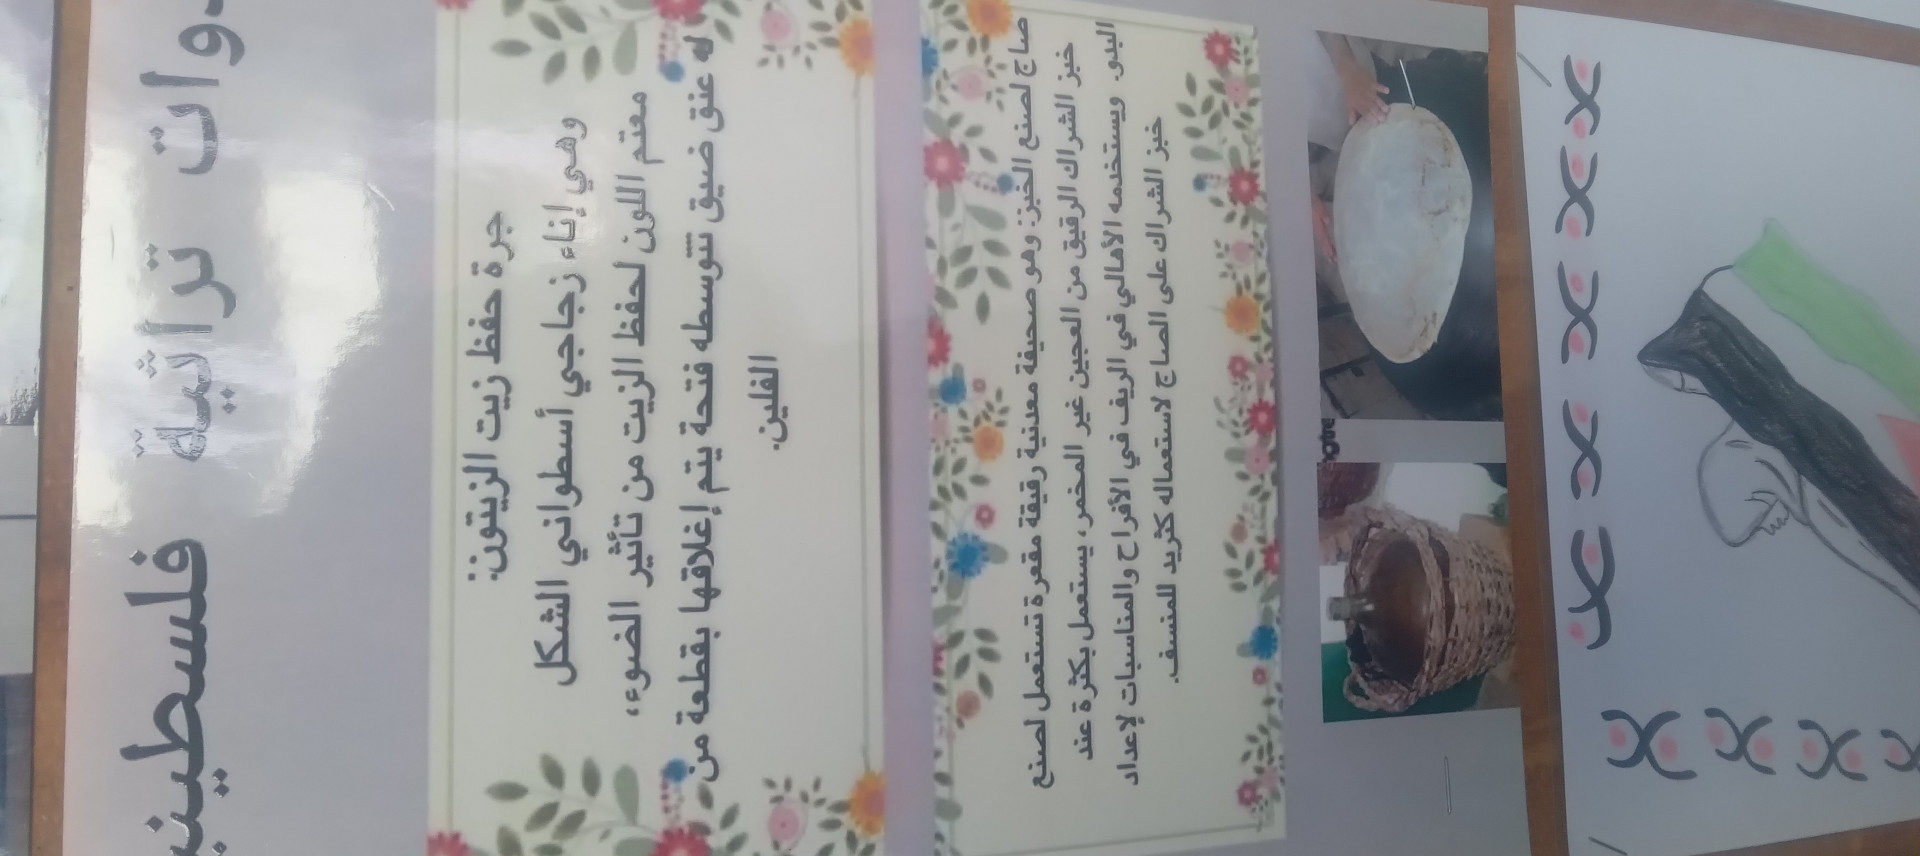 دوات تراثية فلسطيني
جرة حفظ زيت الزيتون:
وهي إناء زجاجي أسطواني الشكل
معتم اللون لحفظ الزيت من تأثير الضوء،
له عنق ضيق تتوسطه فتحة يتم إغلاقها بقطعة من
الفلين.
صاج لصنع الخبز: وهو صحيفة معدنية رقيقة مقعرة تستعمل لصنع
خبز الشراك الرقيق من العجين غير المخمر، يستعمل بكثرة عند
البدو. ويستخدمه الأهالي في الريف في الأفراح والمناسبات لإعداد
خبز الشراك على الصاج لاستعماله كثريد للمنسف.